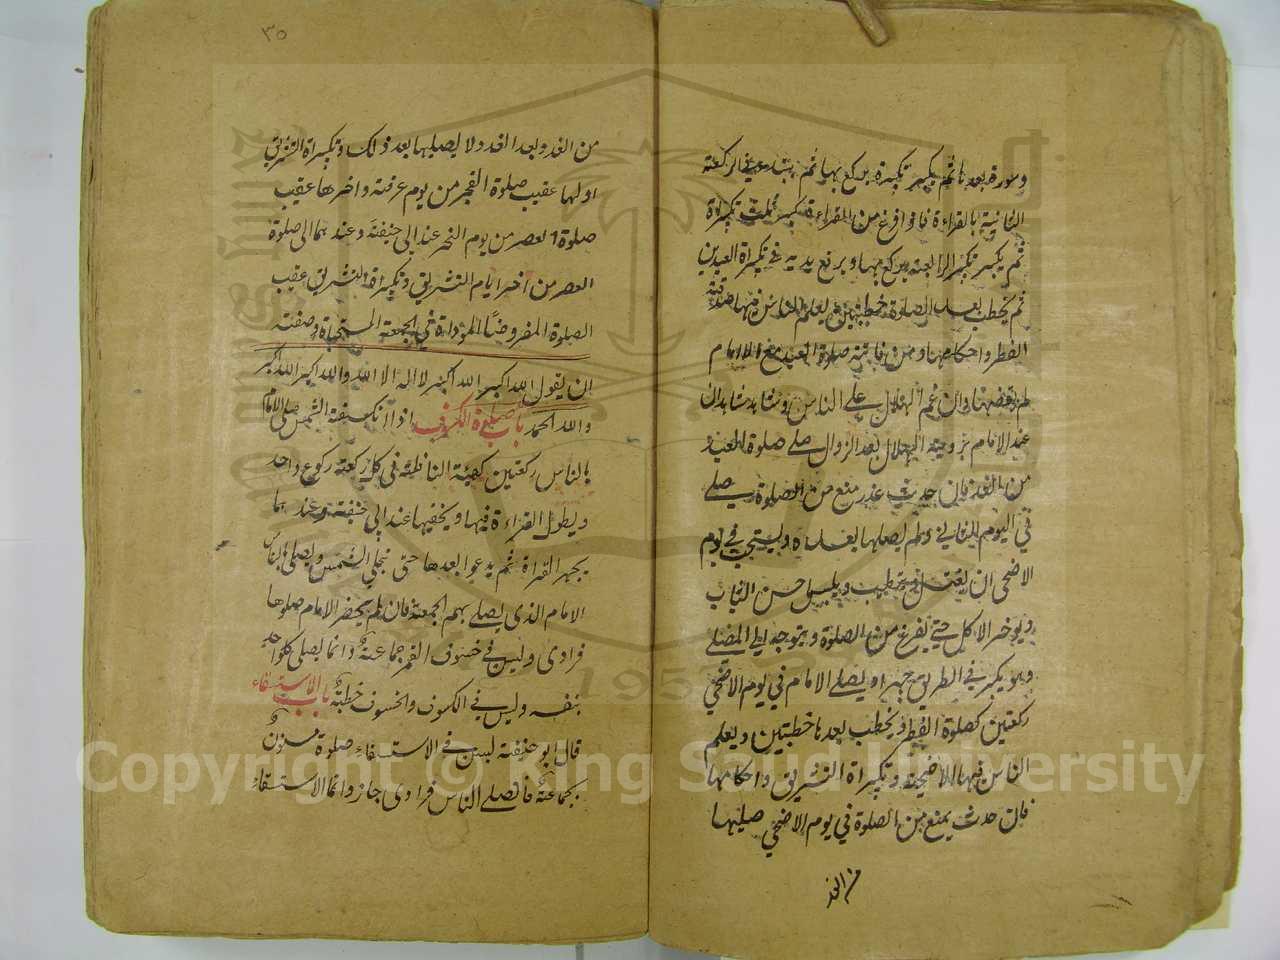 وسورة بعدها ثم يكبر تكبيرة يركع بها ثم يبتدء في الركعة
الثانية بالقراءة فاذا فرغ من القراءة كبر ثلث تكبيراة
ثم يكبر تكبيرا الرابعة يركع بها ويرفع يديه في تكبيراة العيدين
ثم يخطب بعد الصلوة خطبتين يعلم الناس فيها صدقة
الفطر واحكامها ومن فاتته صلوة العيد مع الامام
لم يقضها وان غم الهلال على الناس وشاهد شاهدان
عند الامام برؤية الهلال بعد الزوال صلى صلوة العيد
من الغد فان حدث عذر منع من الصلوة يصلي
في اليوم الثاني ولم يصليها بعده ويستحب في يوم
الاضحى ان يغتسل ويتطيب ويلبس حسن الثياب
ويوخر الاكل حتى يفرغ من الصلوة ويتوجه الى المصلى
وهو يكبر في الطريق جهرا ويصلي الامام في يوم الاضحى
ركعتين كصلوة الفطر ويخطب بعدها خطبتين ويعلم
الناس فيها الاضحية وتكبيراة التشريق واحكامها
فان حدث يمنع من الصلوة في يوم الاضحى صليها
من الغد
٣٥
من الغد وبعد الغد ولا يصليها بعد ذلك وتكبيراة التشريق
اولها عقيب صلوة الفجر من يوم عرفة واخرها عقيب
صلوة العصر من يوم النحر عند ابي حنيفة وعند هما الى صلوة
العصر من اخر ايام التشريق وتكبيراة التشريق عقيب
الصلوة المفروضا المؤداة في الجمعة المستحباة وصفته
ان يقول الله اكبر الله اكبر لا اله الا الله والله اكبر الله اكبر
ولله الحمد باب صلوة الكسوف اذا انكسفة الشمس صلى الامام
بالناس ركعتين كهيئة النافلة في كل ركعة ركوع واحد
ويطول القراءة فيها ويخفيها عند ابي حنيفة وعند هما
يجهر القراة ثم يدعوا بعدها حتى تنجلي الشمس ويصلي بالناس
الامام الذي يصلي بهم الجمعة فان لم يحضر الامام صلوها
فرادى وليس في خسوف القمر جماعة وانما يصلي كل واحد
بنفسه وليس في الكسوف والخسوف خطبة باب الاستسقاء
قال ابو حنيفة ليس في الاستسقاء صلوة مسنون
بجماعة فان صلى الناس فرادى جاز وانما الاستسقاء
Copyright © King Saud University
1957